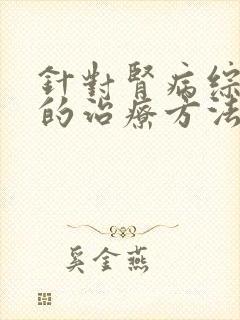 針對腎病綜
的治療方法
奚金燕